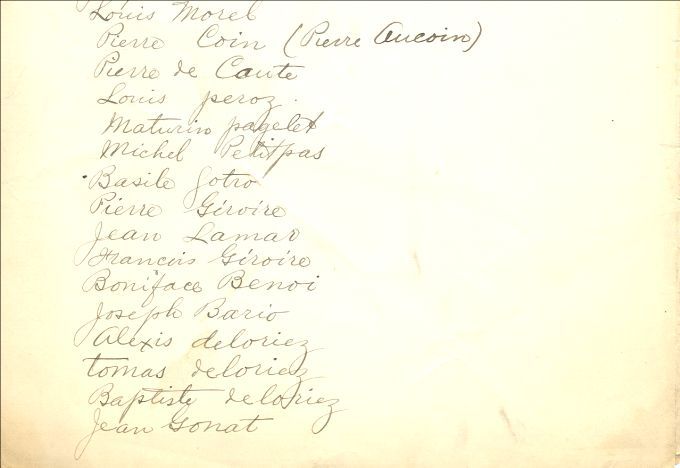 Louis Morel
Pierre Coin (Pierre Aucoin)
Pierre de Caute
Louis peroz.
Maturin pagelet
Michel Petitpas
Basile Gotro
Pierre Giroire
Jean Lamar
Francois Giroire
Boniface Benoi
Joseph Bario
Alexis deloriez
tomas deloriez
Baptiste deloriez
Jean Gonat